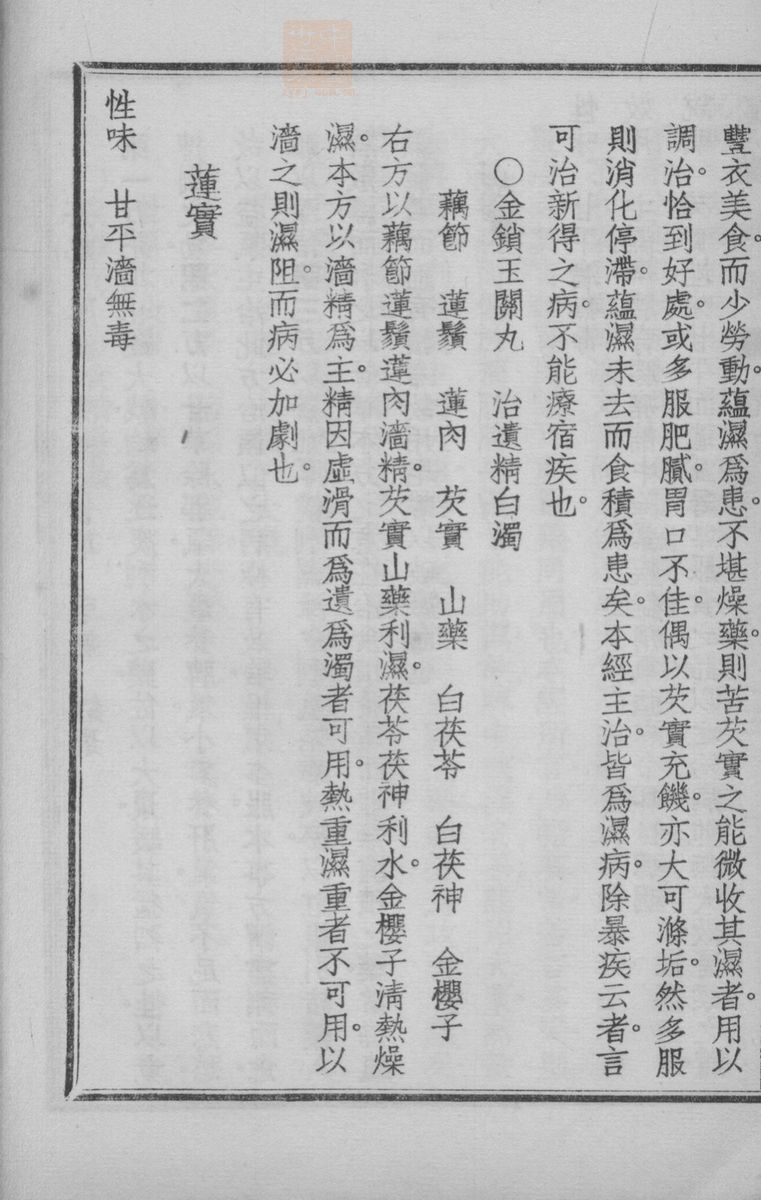 豐衣美食。而少勞動。蘊濕爲患。不堪燥藥。則苦芡實之能微收其濕者。用以
調治。恰到好處。或多服肥膩。胃口不佳。偶以芡實充饑。亦大可滌垢。然多服
則消化停滯。蘊濕未去而食積爲患矣。本經主治。皆爲濕病。除暴疾云者。言
可治新得之病。不能療宿疾也。
○金鎖玉關丸　治遺精白濁
藕節　蓮鬚　蓮肉　芡實　山藥　白茯苓　白茯神　金櫻子
右方以藕節蓮鬚蓮肉濇精。芡實山藥利濕。茯苓茯神利水。金櫻子淸熱燥
濕。本方以濇精爲主。精因虛滑而爲遺爲濁者可用。熱重濕重者不可用。以
濇之則濕阻。而病必加劇也。
蓮實
性味　甘平濇無毒